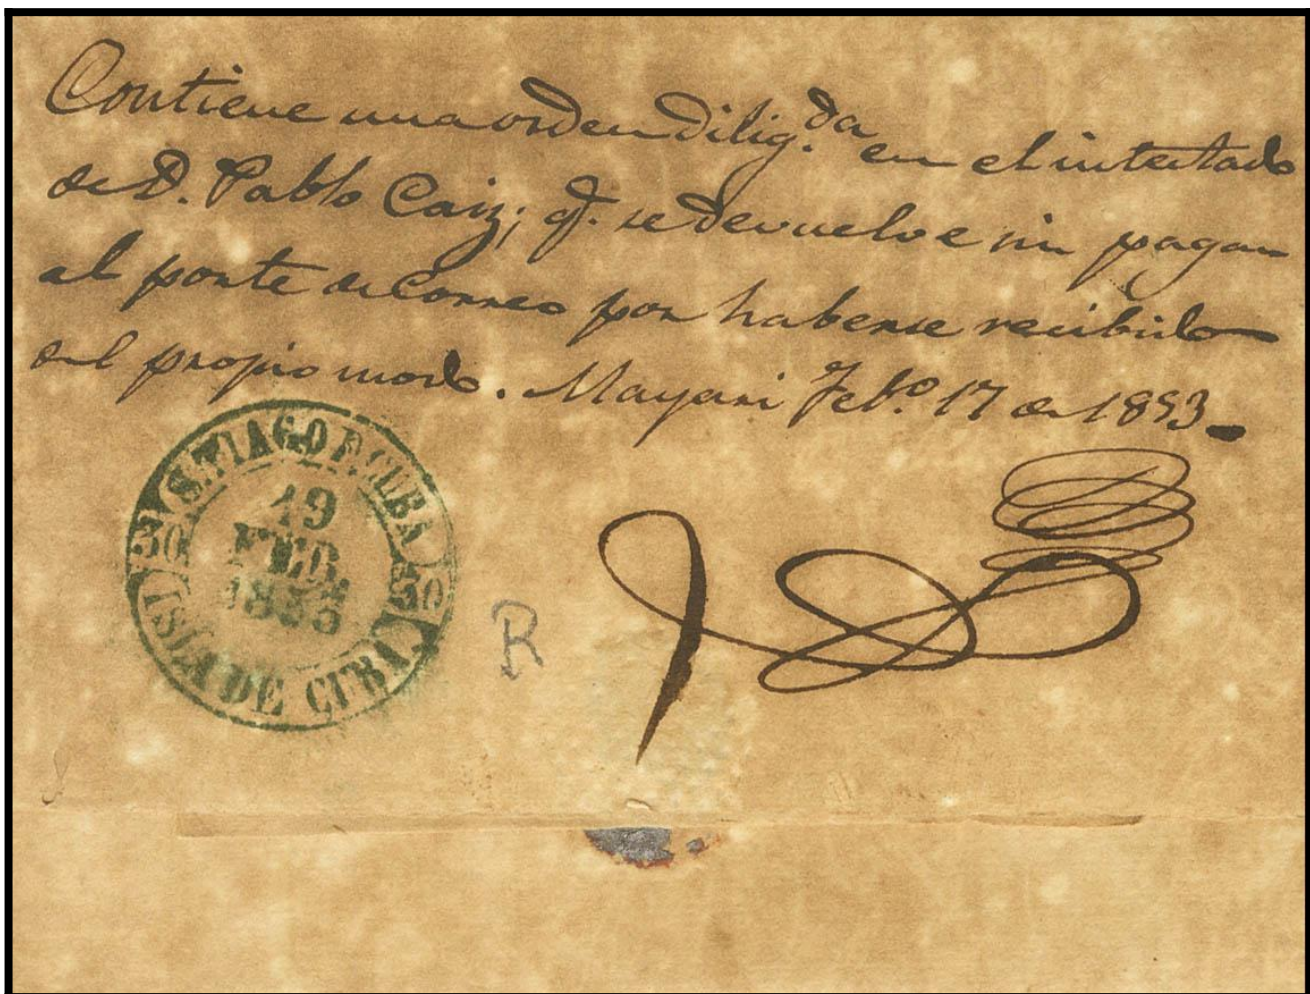 Contiene una orden dilig.da en el intestado
de D. Pablo Caiz; q.e se devuelve sin pagar
el porte de Correo por haberse recibido
del propio modo. Mayari Feb.o 17 de 1853.
S.TIAGO D. CUBA
19
FEB.
1853
30 30
ISLA DE CUBA.
R